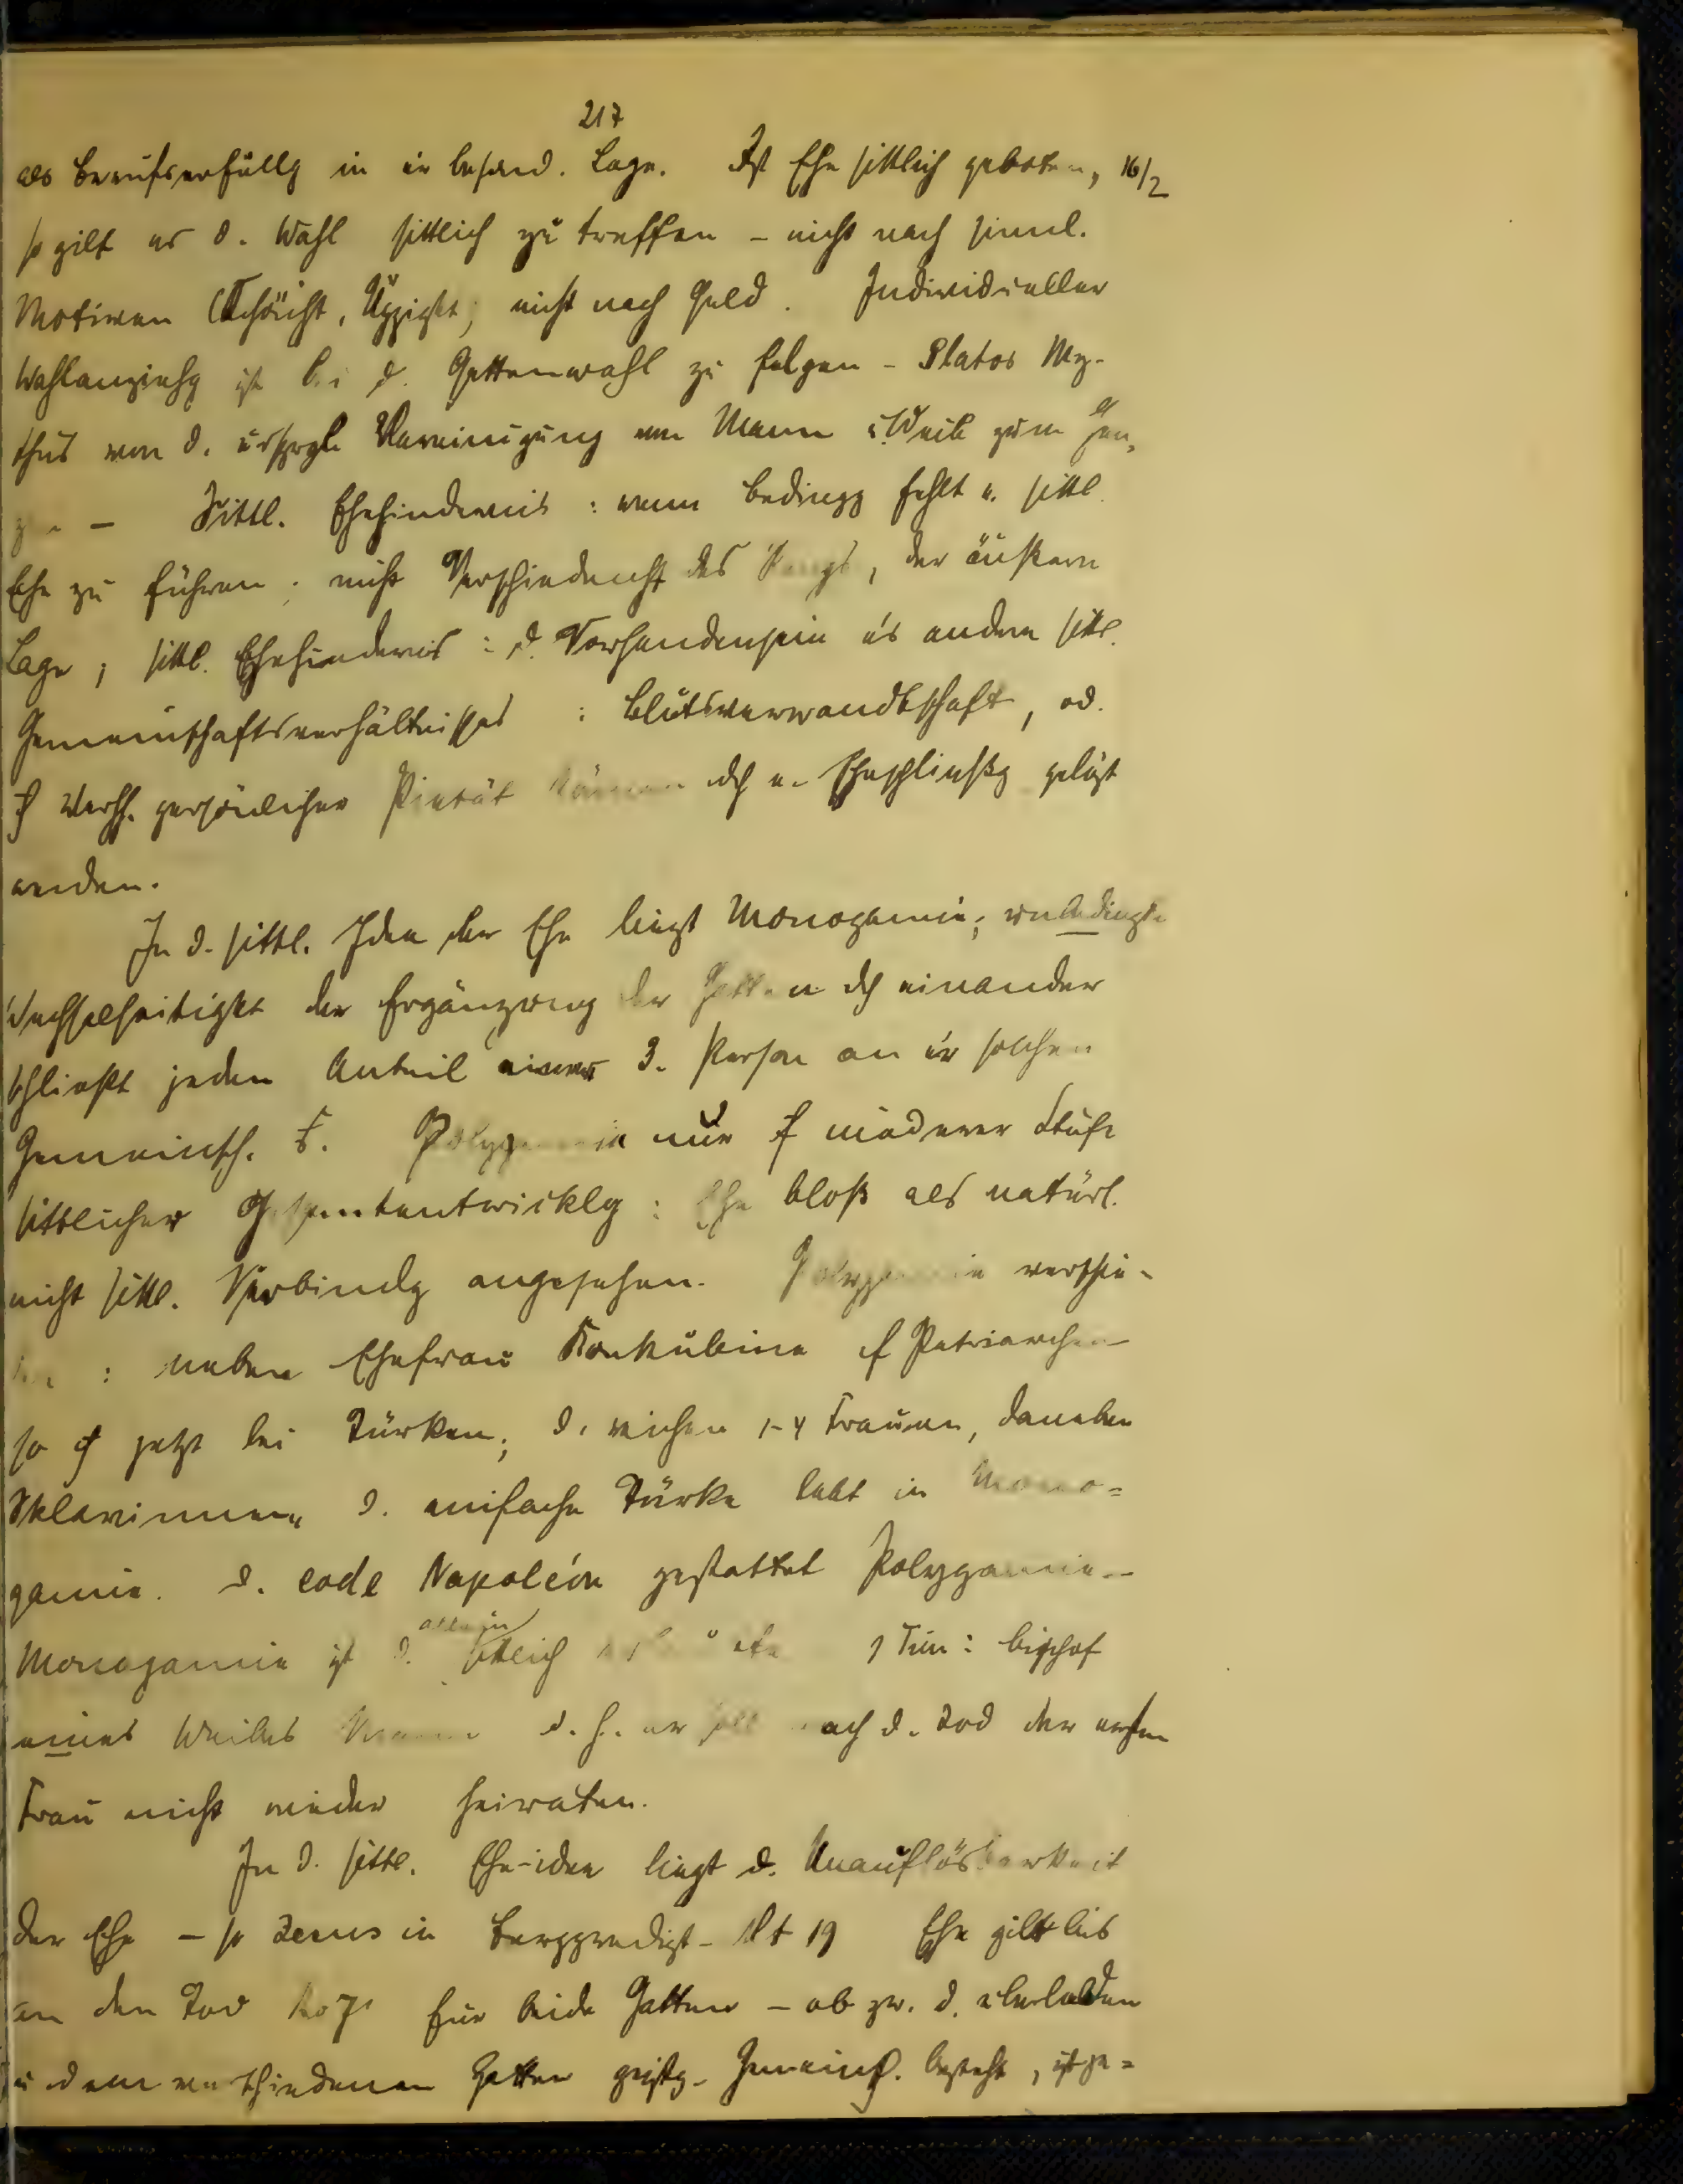 217
als Berufserfüllg in er besond. Lage. Ist Ehe sittlich geboten, 16/2
so gilt es d. Wahl sittlich zu treffen - nicht nach sinnl.
Motiven (Schönht, Üppigkt, nicht nach Geld. Individueller
Wahlanziehg ist bei d. Gattenwahl zu folgen - Platos My-
thus von d. ursprgl Vereinigung von Mann u. Weib zum Gan-
zen - Sittl. Ehehindernis: wenn Bedingg fehlt e. sittl.
Ehe zu führen; nicht Verschiedenht des Rangs, der äußern
Lage; sittl. Ehehindernis: d. Vorhandensein e's andern sittl.
Gemeinschaftsverhältnisses: Blutsverwandtschaft, od.
Verh. persönlicher Pietät können dch e. Eheschließg gelöst
werden.
In d. sittl. Idee der Ehe liegt Monogamie; unbedingte
Wechselseitigkt der Ergänzung der Gatten dch einander
schließt jeden Anteil einer 3. Person an er solchen
Gemeinsch. Polygamie nur niederer Stufe
sittlicher Gesamtentwicklg: Ehe bloß als natürl.
nicht sittl. Verbindg angesehen. Polygamie verschie-
den: neben Ehefrau Konkubine Patriarchen
so jetzt bei Türken; d. reichen 1-4 Frauen, daneben
Sklavinnen, d. einfache Türke lebt in Mono=
gamie. D. code Napoléon gestattet Polygamie -
Monogamie ist d. allein sittlich 1 Tim: bischof
eines Weibes Mann d.h. er soll nach d. Tod der ersten
Frau nicht wieder heiraten.
In d. sittl. Ehe-idee liegt d. Unauflösbarkeit
der Ehe - so Jesus in Bergpredigt - Mt 19 Ehe gilt bis
an den Tod Ro 7 für beide Gatten - ob zw. d. überlebden
u dem verschiedenen Gatten geistg. Gemeinsch. besteht, ist ge=